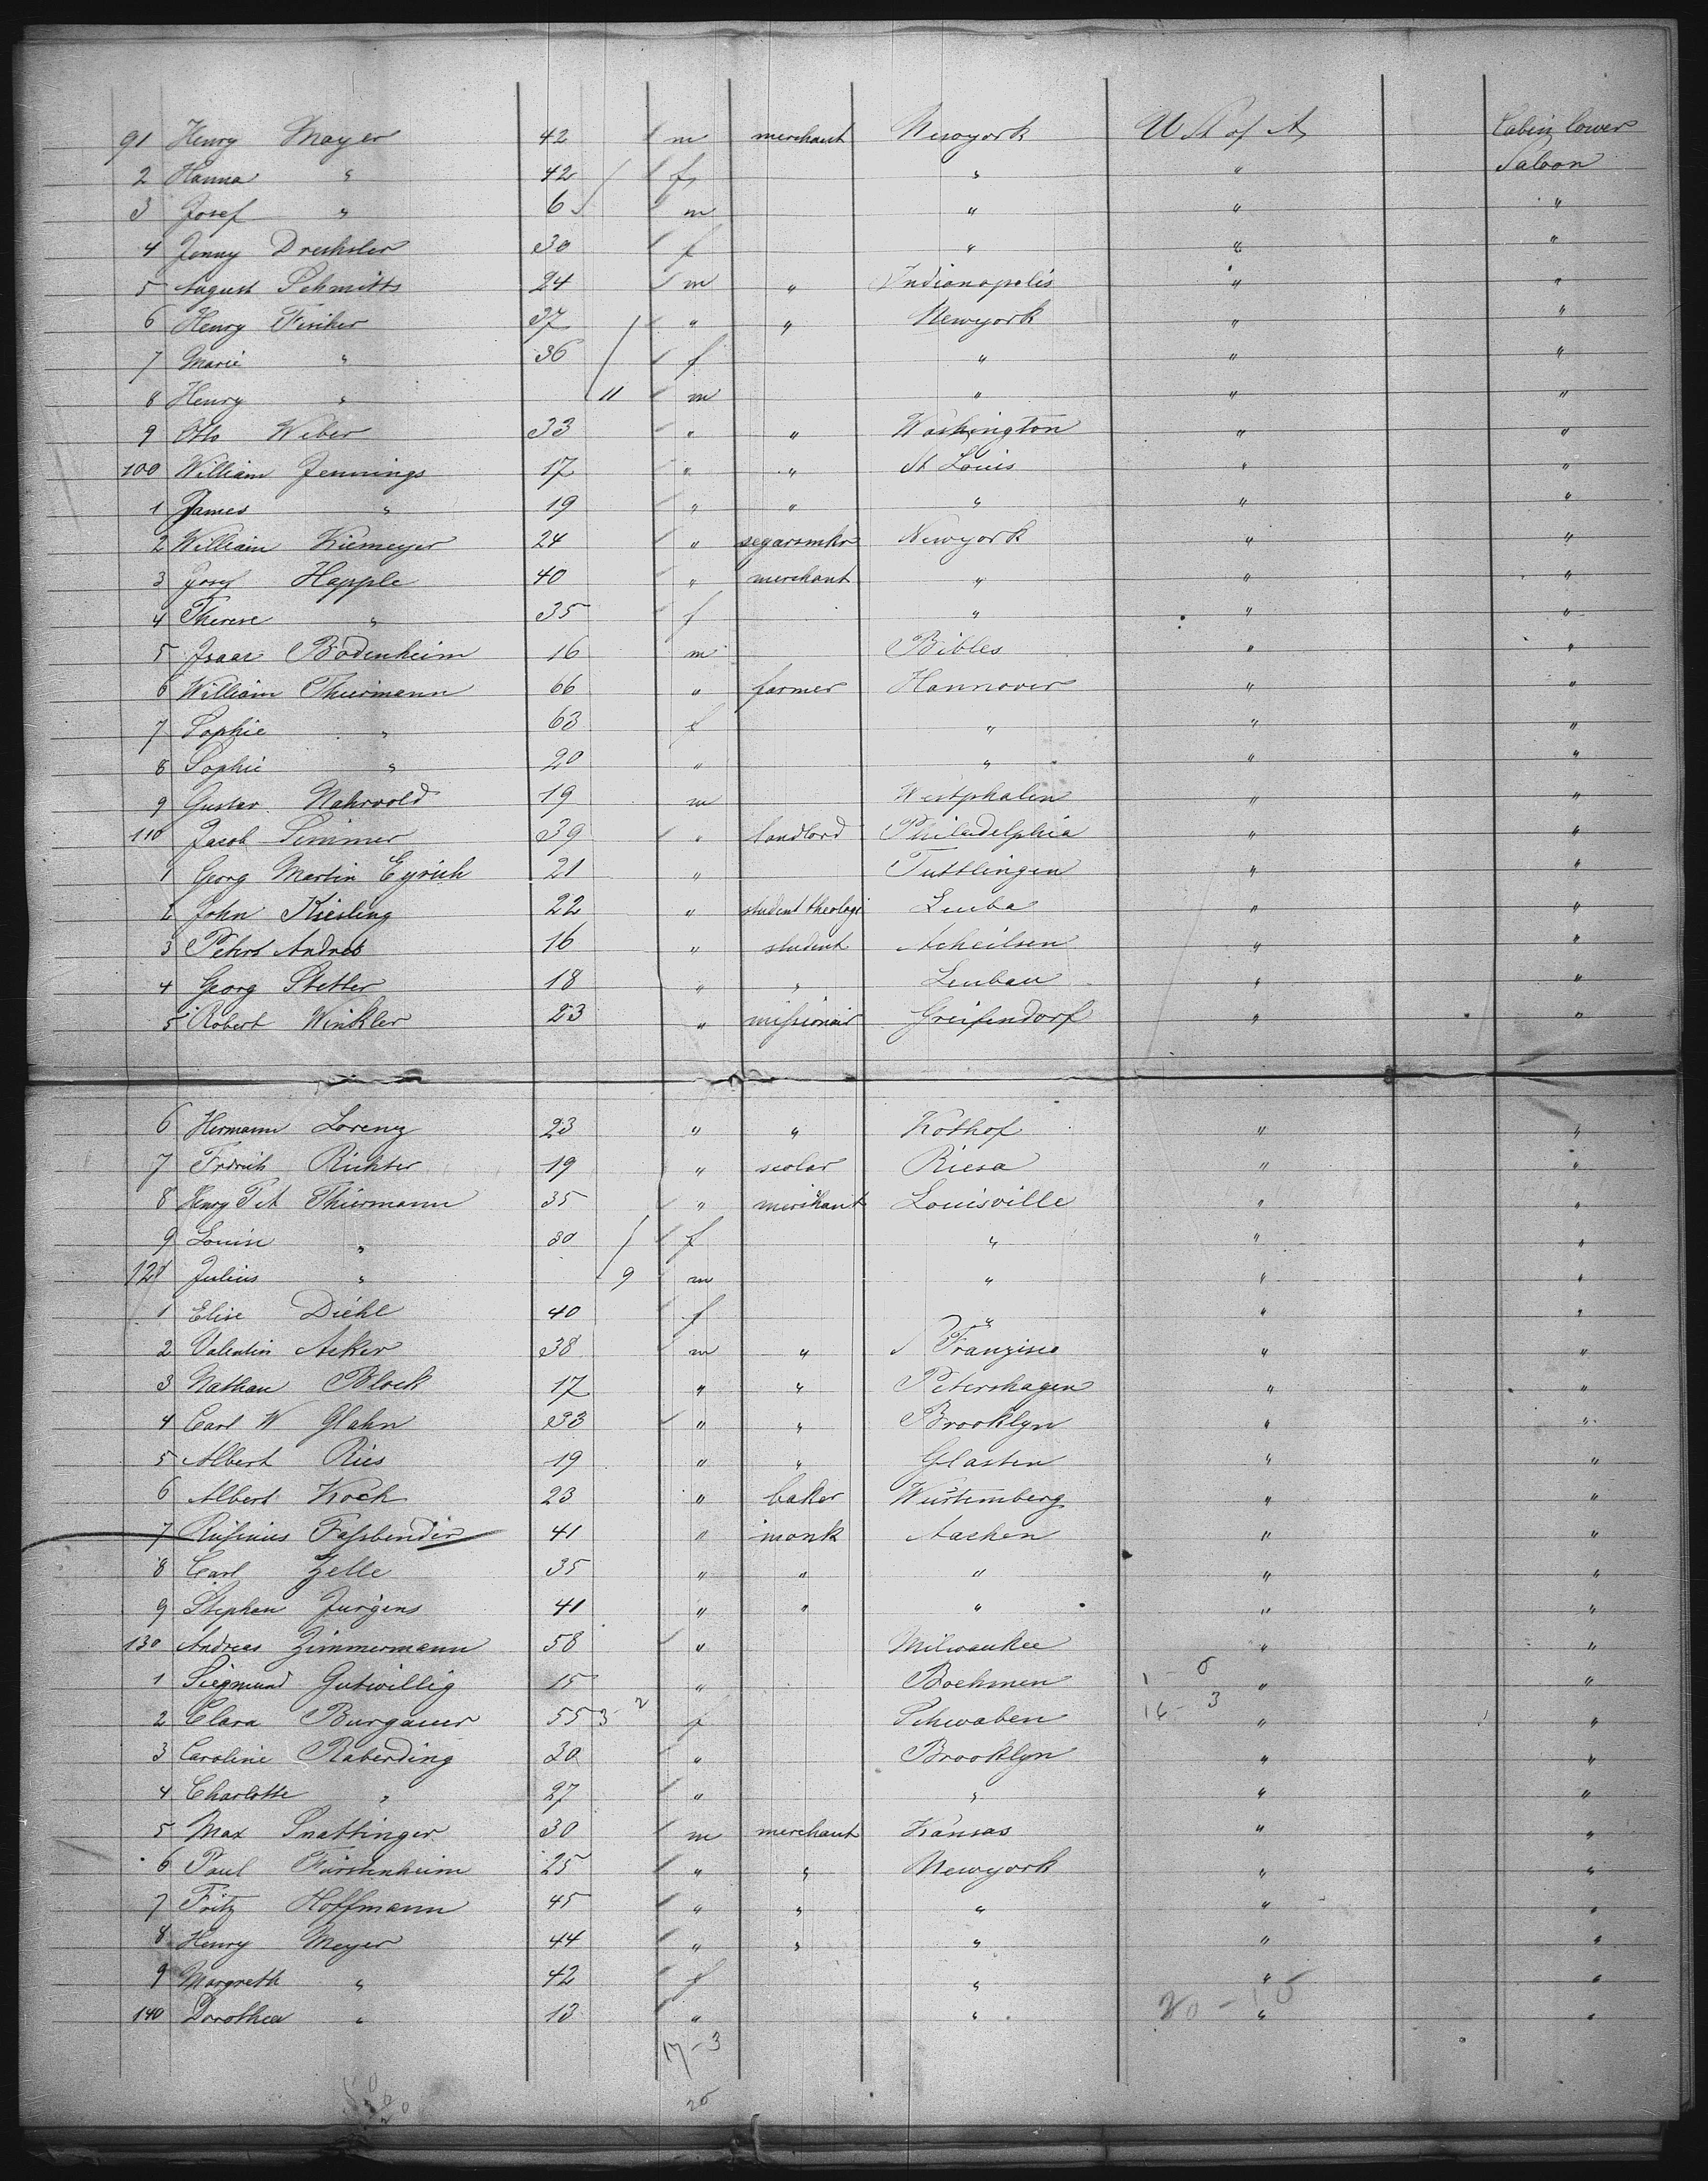 91 Henry Mayer 42 m merchant Newyork U St of A, Cabin lower
2 Hanna " 42 f " " Saloon
3 Josef " 6 m " " "
4 Jenny Drechsler 30 f " " "
5 August Schmitts 24 m " Indianapolis " "
6 Henry 37 " " Newyork " "
7 Marie " 36 f " " "
8 Henry " 11 m " " "
9 Otto Weber 33 " " Washington " "
100 William Jennings 17 " " St Louis " "
1 James " 19 " " " " "
2 William Kiemeyer 24 " segarsmkr Newyork " "
3 Josef Happle 40 " merchant " " "
4 Therese " 35 f " " "
5 Isaac Bodenheim 16 m Bibles " "
6 William Thiermann 66 " farmer Hannover " "
7 Sophie " 63 f " " "
8 Sophie " 20 " " " "
9 Gustav Nahrwold 19 m Westphalen " "
110 Jacob Simmer 39 " landlord Philadelphia " "
1 Georg Martin Eyrich 21 " Tuttlingen " "
2 John Kiesling 22 " student theologi Leuba " "
3 Peters Andres 16 " student " "
4 Georg Stetter 18 " " Leubau " "
5 Robert Winkler 23 " missionair Greifendorf " "
6 Hermann Lorenz 23 " " Kothof " "
7 Frdrich Richter 19 " scolar Riesa " "
8 Henry Pet Thiermann 35 " merchant Louisville " "
9 Louise " 30 f " " "
120 Julius " 9 m " " "
1 Elise Diehl 40 f " " "
2 Valentin Acker 38 m " S Franzisco " "
3 Nathan Block 17 " " Petershagen " "
4 Carl W Glahn 33 " " Brooklyn " "
5 Albert Ries 19 " " Glasten " "
6 Albert Koch 23 " baker Würtemberg " "
7 Rufinus Fassbender 41 " monk Aachen " "
8 Carl Zelle 35 " " " " "
9 Stephan Jurgens 41 " " " " "
130 Andreas Zimmermann 58 " Milwaukee " "
1 Siegmund Gutwillig 15 " Boehmen " "
2 Clara Burgauer 55 f Schwaben 16 - 3 " "
3 Caroline Raberding 30 " Brooklyn " "
4 Charlotte " 27 " " " "
5 Max Snattinger 30 m merchant Kansas " "
6 Paul Fürstenheim 25 " " Newyork " "
7 Fritz Hoffmann 45 " " " " "
8 Henry Meyer 44 " " " " "
9 Margreth " 42 f " " "
140 Dorothea " 13 " " " "
17 - 3